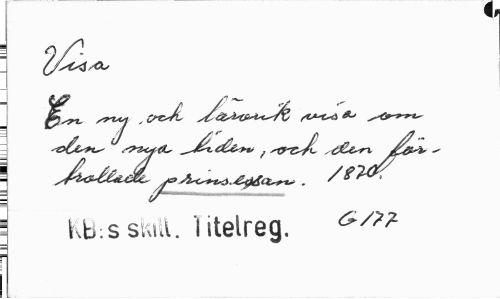 Visa
En ny och lärorik visa om
den nya tiden, och den för-
trollade prinsessan. 1870.
KB:s skill. Titelreg. G 177